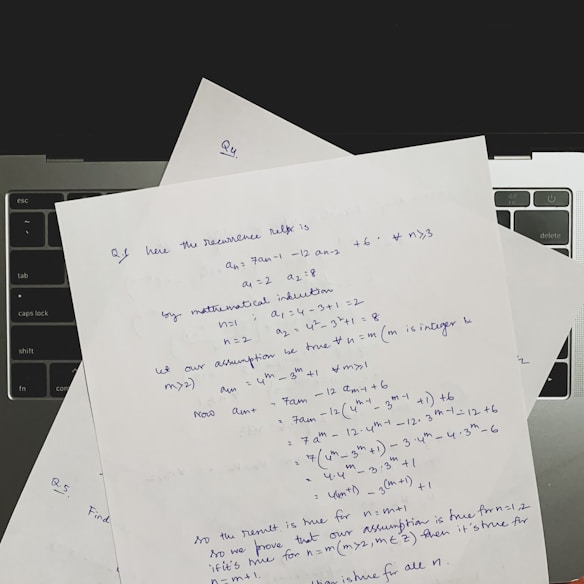 Q4
esc
delete
tab
caps lock
shift
fn
control
Q.1 here the recurrence reln is
aₙ = 7aₙ₋₁ - 12 aₙ₋₂ + 6 · ∀ n ≥ 3
a₁ = 2 a₂ = 8
by mathematical induction
n=1 ; a₁ = 4 - 3 + 1 = 2
n = 2 a₂ = 4² - 3² + 1 = 8
let our assumption be true ∀ n = m (m is integer &
m ≥ 2) aₘ = 4ᵐ - 3ᵐ + 1 ∀ m ≥ 1
Now aₘ₊ = 7aₘ - 12 aₘ₋₁ + 6
= 7aₘ - 12 (4ᵐ⁻¹ - 3ᵐ⁻¹ + 1) + 6
= 7 aᵐ - 12 · 4ᵐ⁻¹ - 12 · 3ᵐ⁻¹ - 12 + 6
= 7(4ᵐ - 3ᵐ + 1) - 3 · 4ᵐ - 4 · 3ᵐ - 6
= 4 · 4ᵐ - 3 · 3ᵐ + 1
= 4(m+1) - 3⁽ᵐ⁺¹⁾ + 1
so the result is true for n = m+1
so we prove that our assumption is true for n = 1, 2
if it's true for n = m (m > 2, m ∈ Z) then it's true for
n = m+1.
is true for all n.
Q.5
Find